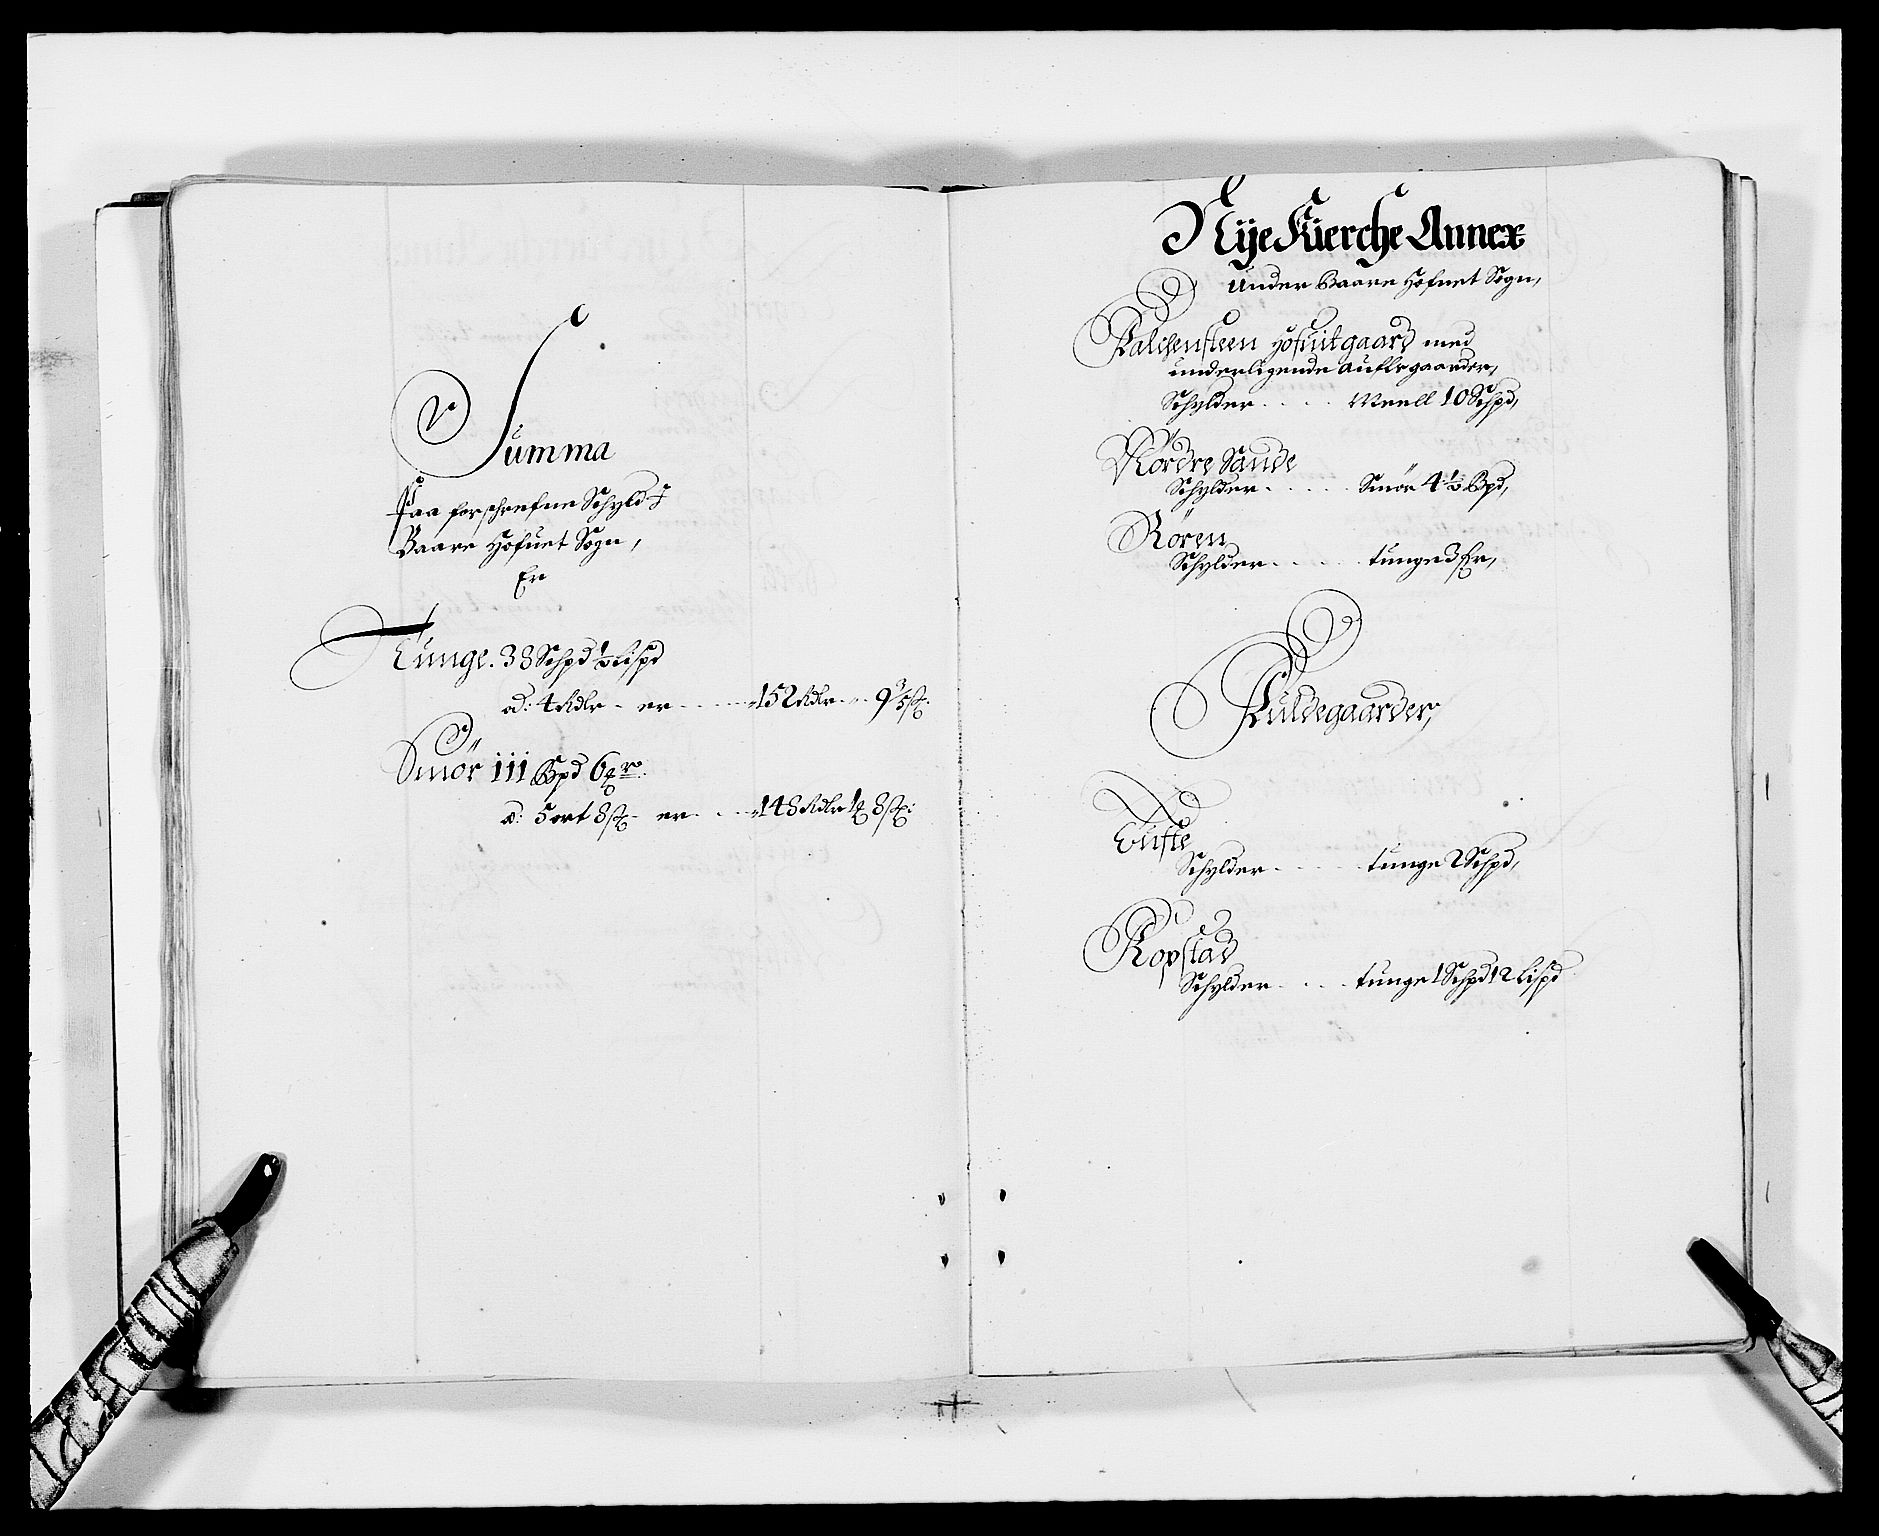 Summa
Paa forschrefne Schyld I
Baare Hofuet Sogn,
Er
Tunge. 38 Schpd ½ Lispd
ad: 4 Rdlr - er - - - 152 Rdlr - 9 3/5 sk.
Smör 111 Bpd 6 mr.
ad: 5 ort 8 sk - er - - - 148 Rdlr 1 mk 8 sk:
Nye Kierche Annex
Under Baare Hofuet Sogn,
Falchensteen Hofuitgaard med
underligende Aufls gaarder,
Schylder - - - - Meell 10 Schpd,
Nordre Sande
Schylder - - - - Smör 4½ Bpd,
Rören
Schylder - - - - tunge 3 fr,
Fuldegaarder,
Tufte
Schylder - - - - tunge 2 Schpd,
Kopstad
Schylder - - - - tunge 1 Schpd 12 Lispd